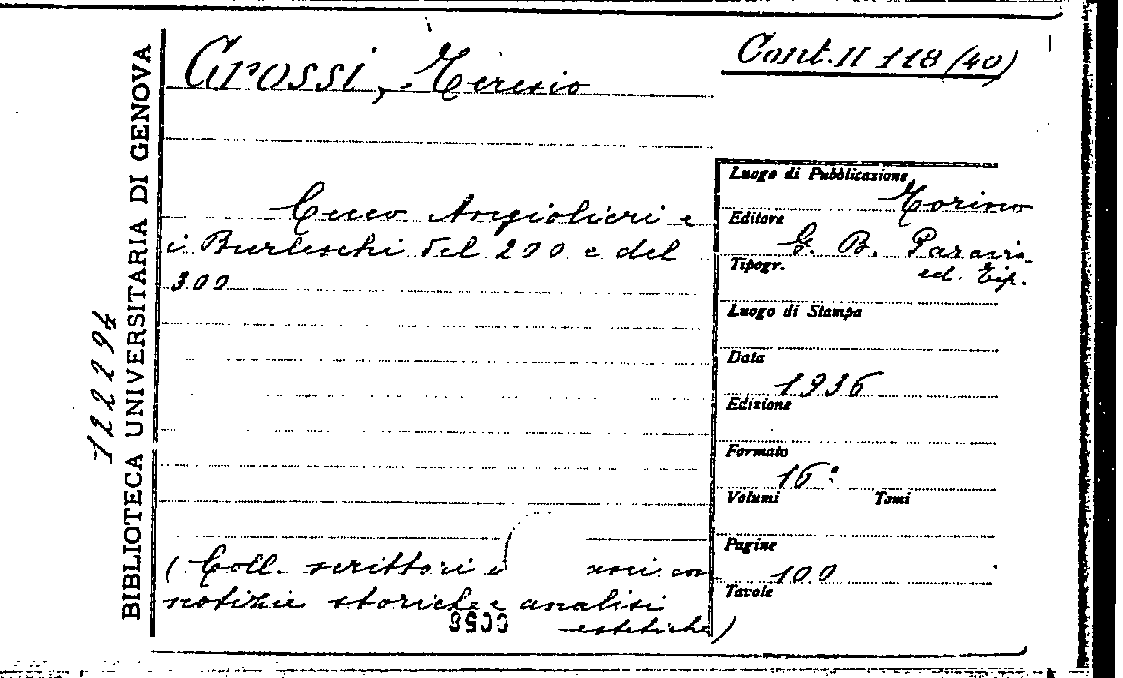 Grossi, Teresio
Cont. II 118 (40)
Cecco Angiolieri e
i Burleschi del 200 e del
300
(Coll. scrittori
notizie storiche e analisi
estetiche)
Luogo di Pubblicazione Torino
Editore G. B. Paravia
Tipogr. ed. Tip.
Luogo di Stampa
Data 1936
Edizione
Formato 16°
Volumi Tomi
Pagine 100
Tavole
BIBLIOTECA UNIVERSITARIA DI GENOVA
122294